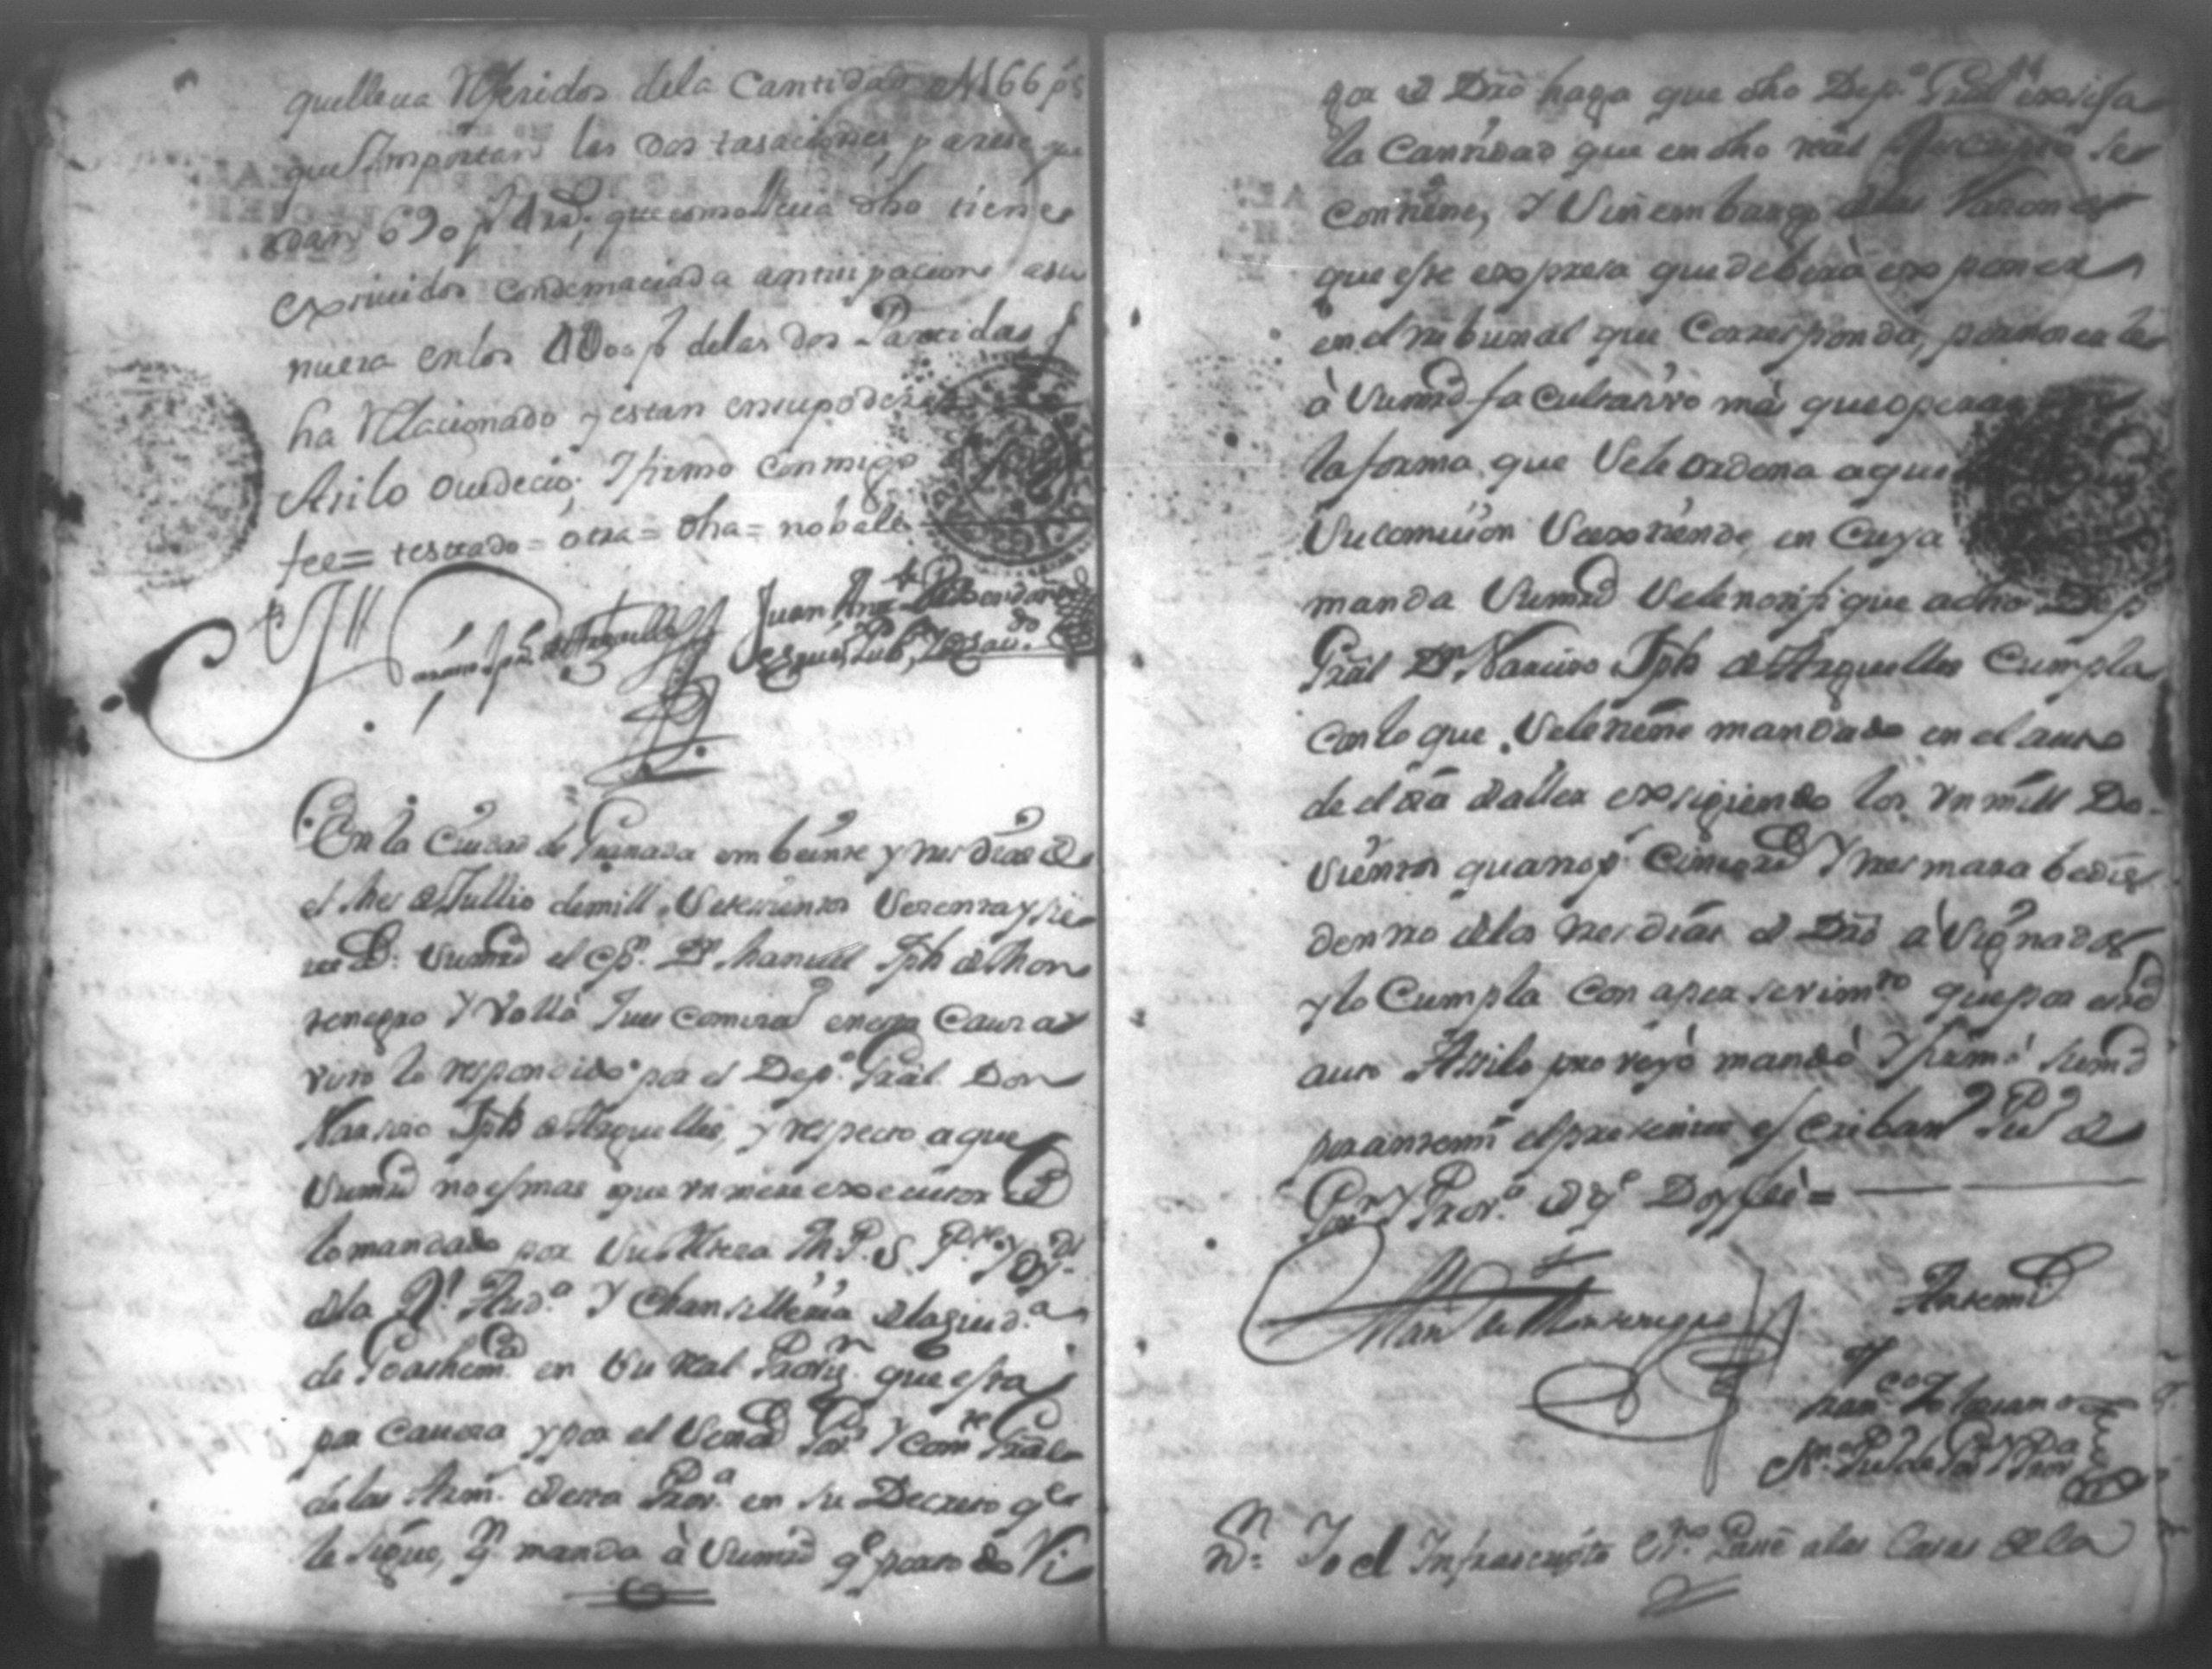 quelleua Referidos dela Cantidad 4166 ps
que Importan las dos tasaciones, parese que
dan 690 p 4 rs; que como lleua dho tiene
exsiuidos con demaciada antisipacion asu
nueza en los 1000 p delas dos Partidas q
ha Relacionado y estan en su poder
Asilo Ouedecio; Y firmo Conmigo
fee= testado= otra= dha= no bale
Narciso Jph de Arguelles Juan Ant Abendaño
es.no Pub,
En la Ciudad de Granada em beinte y tres dias de
el Mes de Jullio de mill Setesientos Sesenta y sie
te a.s Su md el Cp.n Dn Manuel Jph de Mon
tenegro Y Vollo Jues Comisio en esta Causa
visto lo respondido por el Dep.o Gral Don
Narsiso Jph de Arguelles, y respecto a que
Su md no es mas que un mero executor de
lo mandado por Su Alteza M. P. S. P.te y Oy.s
de la Rl Aud.a Y Chansilleria de la Ciud.a
de Goathem.a en Su Real Provis.n que esta
por Cauesa y por el Señor Gov.r Y Com.te Gral
de las Arm.s de esta Prov.a en su Decreto q.e
le sigue, q.n manda à Su md q.e pasado Vi
ga el Dro haga que dho Dep.o Gral exsiva
la Cantidad que en dho real Rescripto se
contiene, Y Sin embargo de las Razones
que este expresa que deberá exponer
en el tribunal que Corresponda, por no ser le
à Su md facultativo mas que operar
la forma que Se le ordena a que
Su comision Se extiende, en Cuya
manda Su md Se le notifique a dho Dep.o
Gral Dn Narciso Jph de Arguelles Cumpla
con lo que Se le tiene mandado en el auto
de el dia de aller exsigiendo los un mill Do
sientos quatro p.s Cinco rs Y tres marabedis
dentro de los tres dias de Dro à Signados
y lo Cumpla con apersevim.to que por este
auto Assilo proveyò mandò Y firmò Su md
por ante mi el presente escriban.o Pu.co de
Gov.n Y Prov.a de q.e Doy fee=
Man. de Montenegro Antemi
Fran.co
S.no Pu.co de Gov.n Y Prov.a
N.n Yo el Infraescripto Es.no Pasé a las Casas de la